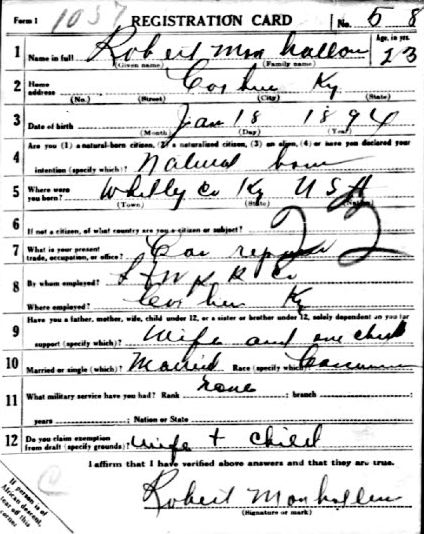 Form 1 1057 REGISTRATION CARD No. 58
1 Name in full Robert Monhollon Age, in yrs. 23
(Given name) (Family name)
2 Home address Corbin Ky
(No.) (Street) (City) (State)
3 Date of birth Jan 18 1894
(Month) (Day) (Year)
Are you (1) a natural-born citizen, (2) a naturalized citizen, (3) an alien, (4) or have you declared your
4 intention (specify which)? Natural born
5 Where were you born? Whitly Co Ky USA
(Town) (State) (Nation)
6 If not a citizen, of what country are you a citizen or subject?
22
7 What is your present trade, occupation, or office? Car
8 By whom employed? L + N R R Co
Where employed? Corbin Ky
Have you a father, mother, wife, child under 12, or a sister or brother under 12, solely dependent on you for
9 support (specify which)? Wife and one child
10 Married or single (which)? Married Race (specify which)?
11 What military service have you had? Rank none ; branch
years ; Nation or State
12 Do you claim exemption from draft (specify grounds)? Wife + Child
I affirm that I have verified above answers and that they are true.
Robert Monhollen
(Signature or mark)
If person is of
African descent,
tear off this
corner.